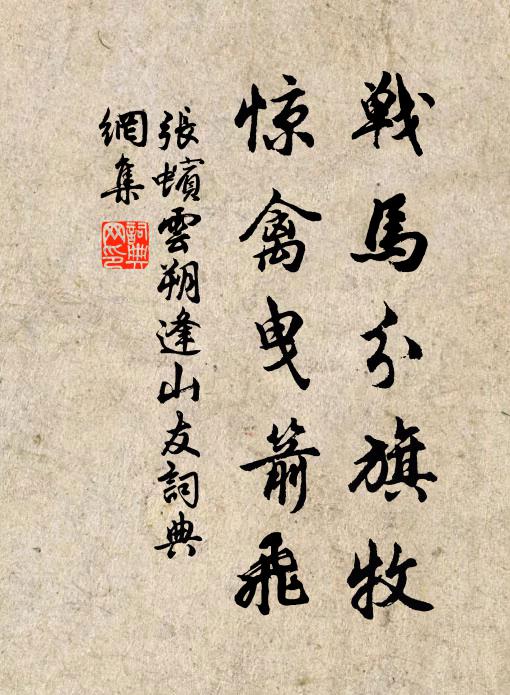 戦馬分旗牧
惊禽曳箭飛
張蠙雲朔逢山友詞典
網集
詞典
网印